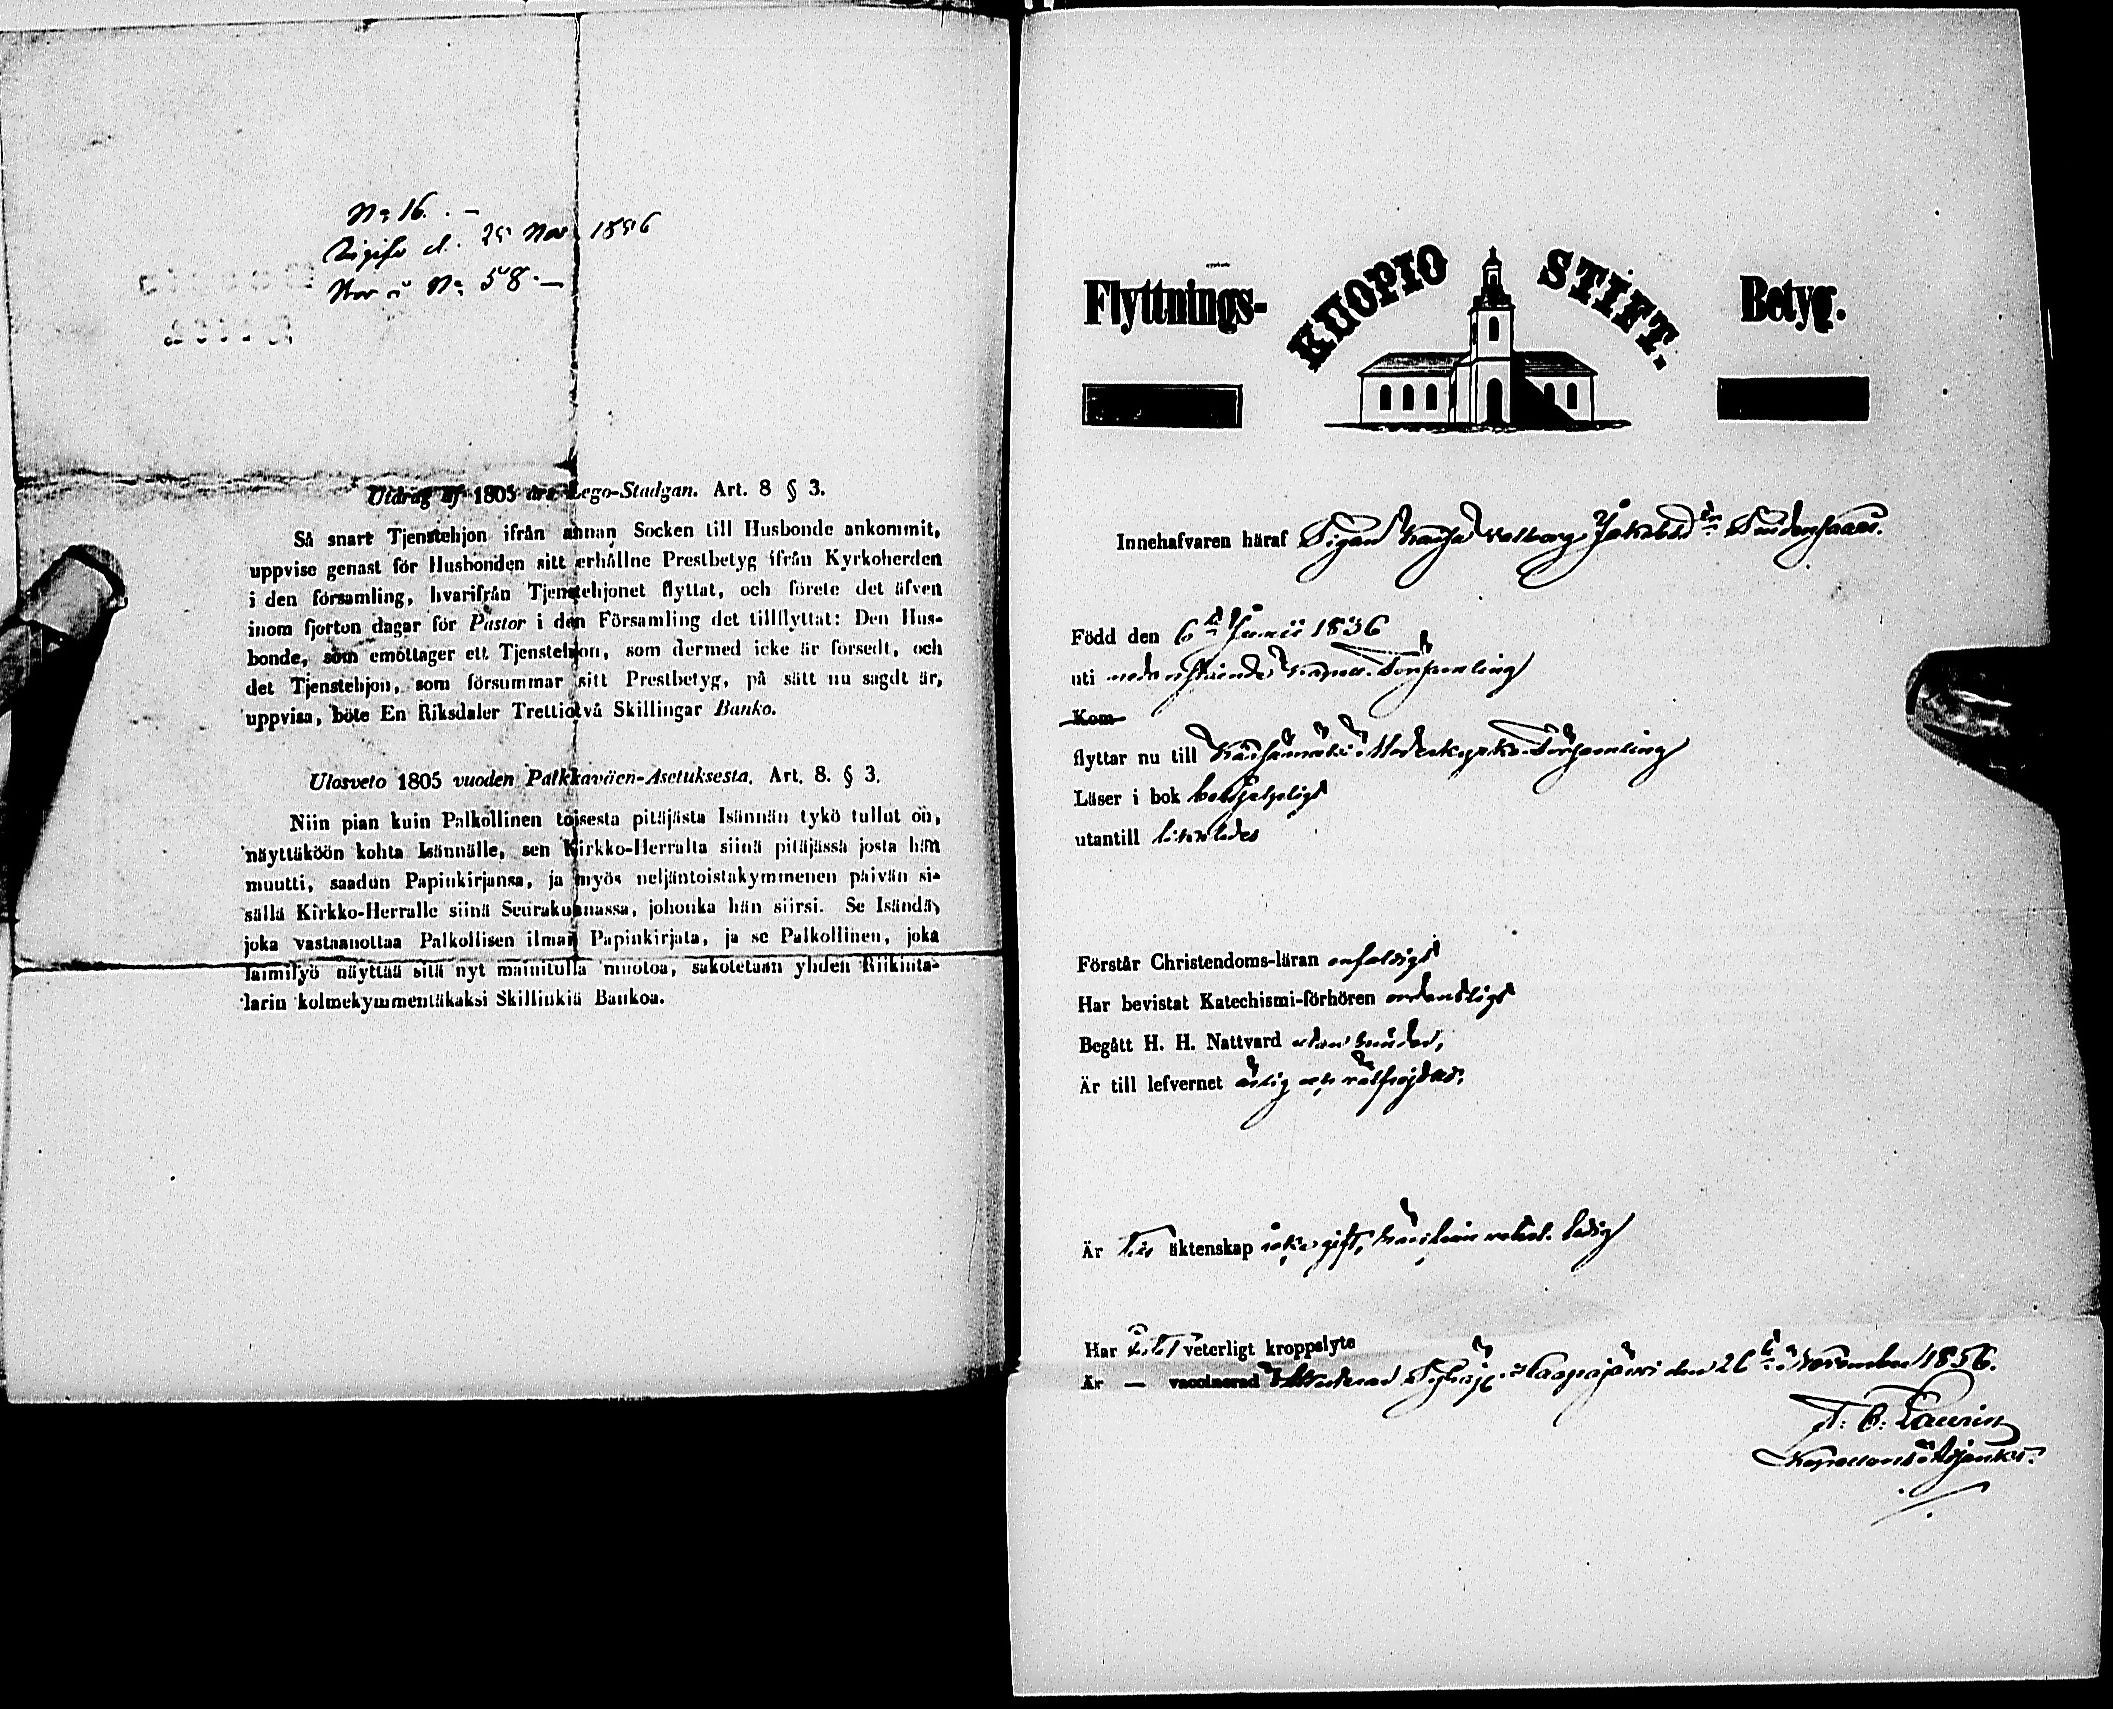 N: 16. -
d. 25 Nov 1856
N: 58. —
Utdrag af 1805 års Lego-Stadgan. Art. 8 § 3.
Så snart Tjenstehjon ifrån annan Socken till Husbonde ankommit,
uppvise genast för Husbonden sitt erhållne Prestbetyg ifrån Kyrkoherden
i den församling, hvarifrån Tjenstehjonet flyttat, och förete det äfven
inom fjorton dagar för Pastor i den Församling det tillflyttat: Den Hus-
bonde, som emottager ett Tjenstehjon, som dermed icke är försedt, och
det Tjenstehjon, som försummar sitt Prestbetyg, på sätt nu sagdt är,
uppvisa, böte En Riksdaler Trettiotvå Skillingar Banko.
Ulosveto 1805 vuoden Palkkaväen-Asetuksesta. Art. 8. § 3.
Niin pian kuin Palkollinen toisesta pitäjästa Isännän tykö tullut on,
näyttäköön kohta Isännälle, sen Kirkko-Herralta siinä pitäjässä josta hän
muutti, saadun Papinkirjansa, ja myös neljäntoistakymmenen päivän si-
sällä Kirkko-Herralle siinä Seurakunnassa, johonka hän siirsi. Se Isändä,
joka vastaanottaa Palkollisen ilman Papinkirjata, ja se Palkollinen, joka
laimilyö näyttää sitä nyt mainitulla muotoa, sakotetaan yhden Riikinta-
larin kolmekymmentäkaksi Skillinkiä Bankoa.
Flyttnings- KUOPIO STIFT. Betyg.
Innehafvaren häraf Pigan Kaisa Walborg Jakobsd:r
Född den 6:te Junii 1836
uti Kapell-Församling
Kom
flyttar nu till Moderkyrko-Församling
Läser i bok behjelpligt
utantill likaledes
Förstår Christendoms-läran enfaldigt
Har bevistat Katechismi-förhören ordentligt
Begått H. H. Nattvard utan hinder,
Är till lefvernet ärlig och välfrejdad;
Är till äktenskap icke gift, ledig
Har intet veterligt kroppslyte
Är — vaccinerad Haapajärvi den 26:te November 1856.
Laurin
Kapellans